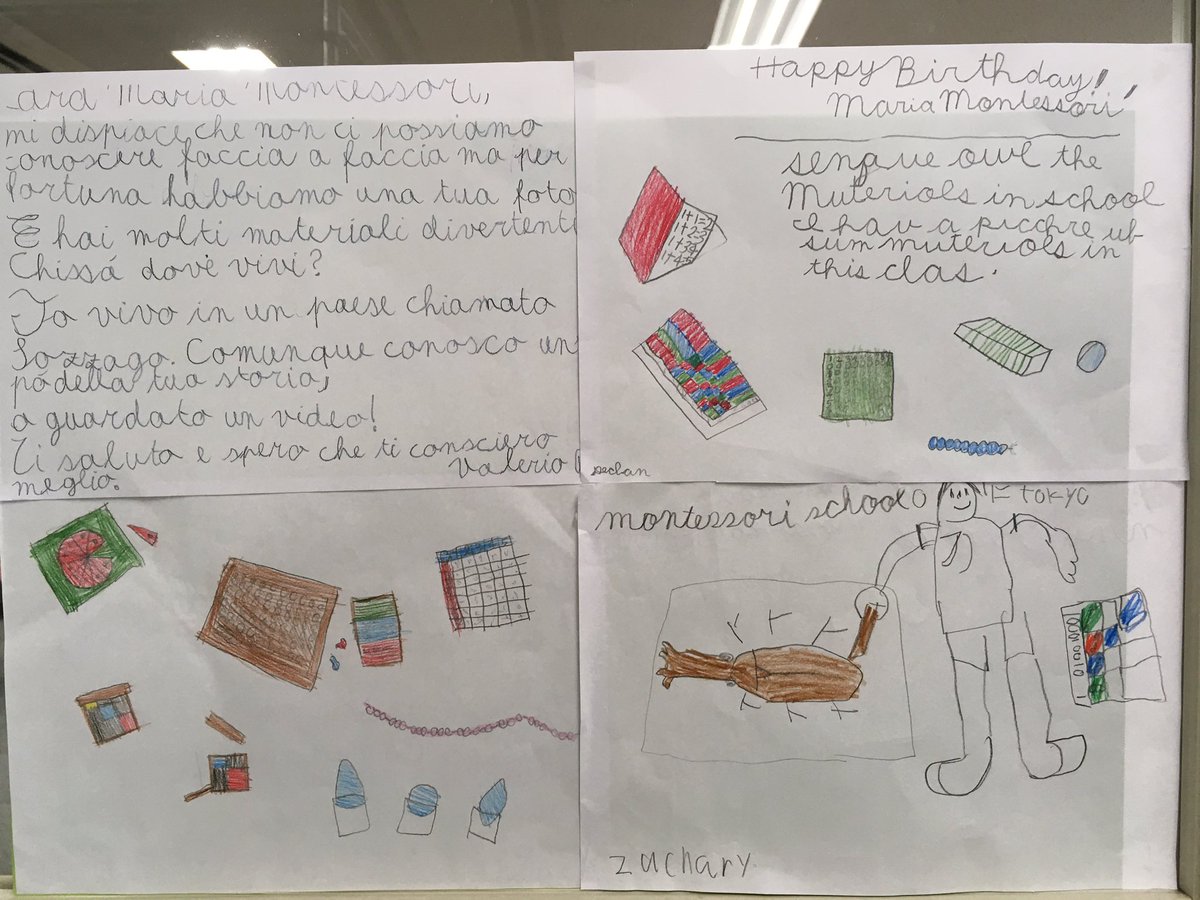 ara Maria Montessori,
mi dispiace che non ci possiamo
conoscere faccia a faccia ma per
fortuna habbiamo una tua foto
E hai molti materiali divertenti
Chissá dove vivi?
Io vivo in un paese chiamato
Sozzago. Comunque conosco un
pò della tua storia,
o guardato un video!
Ti saluto e spero che ti consciero
meglio.
Valerio
Happy Birthday!,
Maria Montessori
senque owl the
Muteriols in school
I hav a picchre ub
sum muteriols in
this clas.
1+1=2
1+2=3
1+3=4
1+4=5
declan
montessori school
tokyo
1 10 100 1000
zuchary